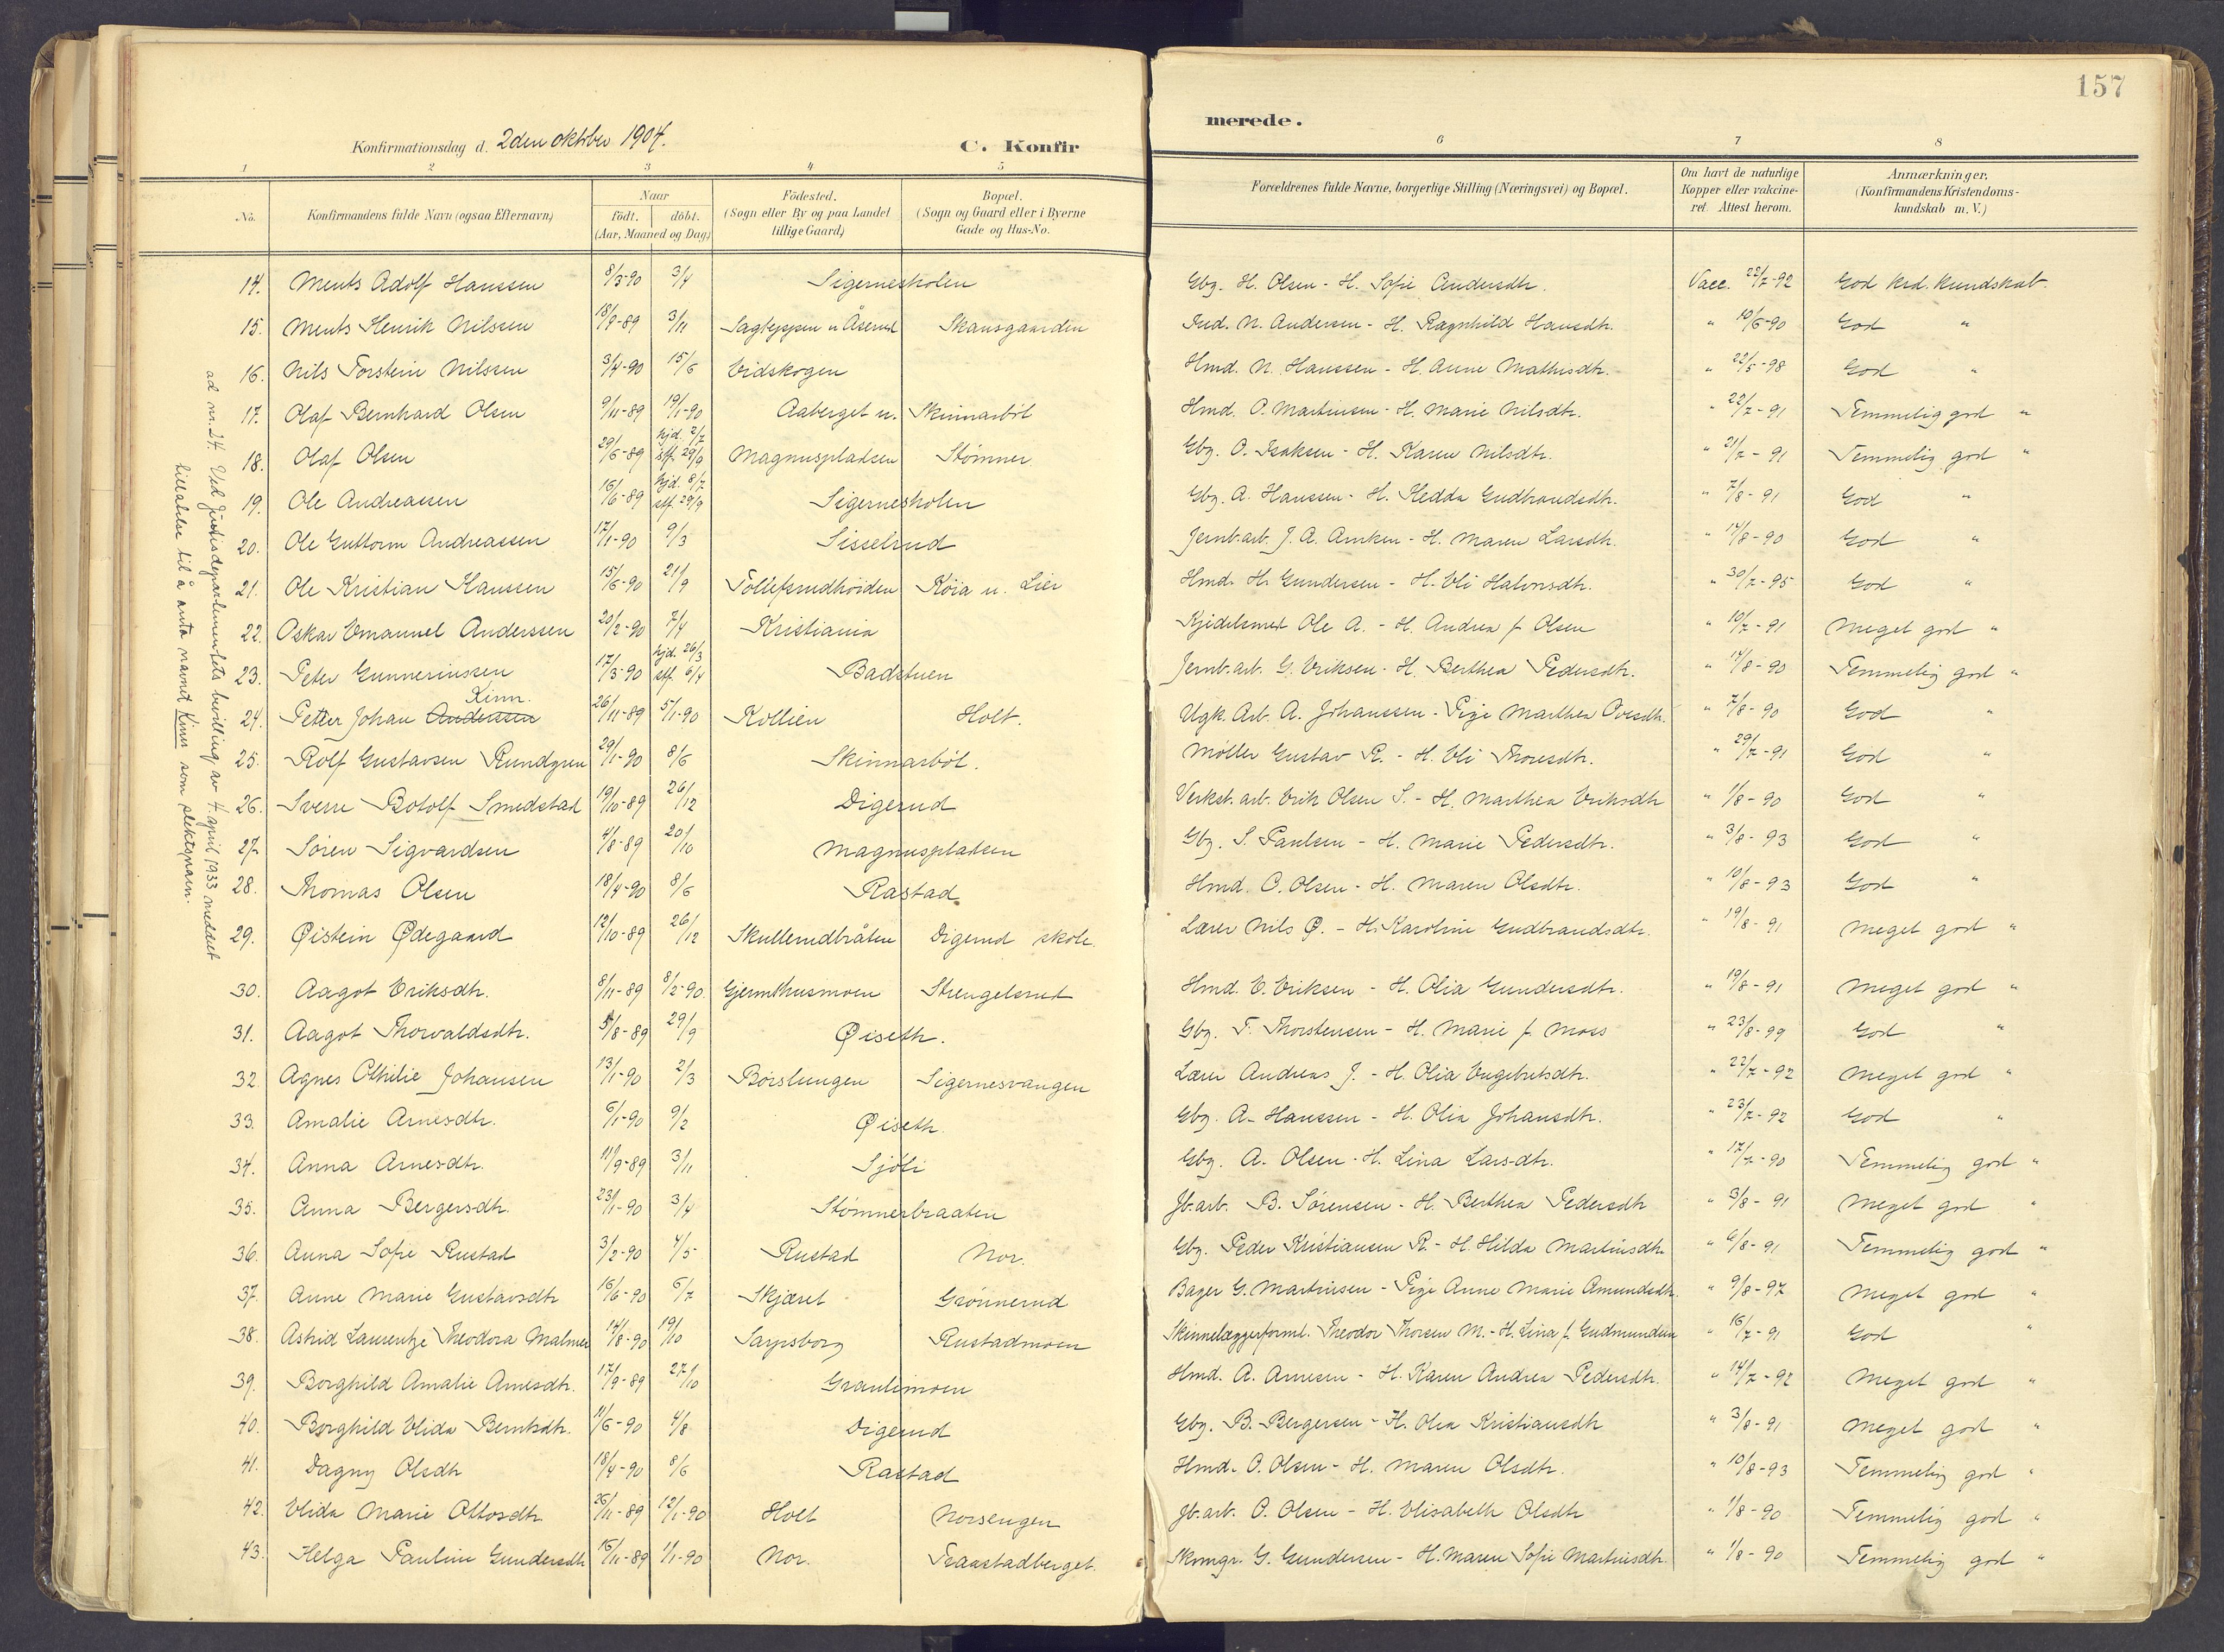 157
Konfirmationsdag d. 2den oktober 1904.
C. Konfir
merede.
1 2 3 4 5 6 7 8
No.
Konfirmandens fulde Navn (ogsaa Efternavn)
Naar
födt. döbt.
(Aar, Maaned og Dag)
Födested.
(Sogn eller By og paa Landet
tillige Gaard)
Bopæl.
(Sogn og Gaard eller i Byerne
Gade og Hus-No.
Forældrenes fulde Navne, borgerlige Stilling (Næringsvei) og Bopæl.
Om havt de naturlige
Kopper eller vakcine-
ret. Attest herom.
Anmærkninger.
(Konfirmandens Kristendoms-
kundskab m. V.)
14. Ments Adolf Hanssen 8/3-90 3/4 Sigernesholen Gbg. H. Olsen - H. Sofie Andersdtr. Vacc. 22/7-92 God krd. kundskab.
15. Ments Henrik Nilssen 18/9-89 3/11 Sagtyppen u Åserud Skansgaarden Ind. N. Andersen - H. Ragnhild Hansdtr. " 10/6-90 God "
16. Nils Torstein Nilssen 3/4-90 15/6 Eidskogen Hmd. N. Hanssen - H. Anne Mathisdtr. " 22/5-98 God "
17. Olaf Bernhard Olsen 9/11-89 19/1-90 Aaberget u. Skinnarböl Hmd. O. Martinsen - H. Marie Nilsdtr. " 22/7-91 Temmelig god "
18. Olaf Olsen 29/6-89 hjd. 2/7 stf. 29/9 Magnuspladsen Stömner Gbg. O. Isaksen - H. Karen Nilsdtr. " 21/7-91 Temmelig god "
19. Ole Andreassen 16/6-89 hjd. 8/7 stf. 29/9 Sigernesholen Gbg. A. Hanssen - H. Hedda Gudbrandsdtr. " 7/8-91 God "
20. Ole Guttorm Andreassen 17/1-90 9/3 Sisselrud Jernb.arb. J. A. - H. Maren Larsdtr. " 14/8-90 God "
21. Ole Kristian Hanssen 15/6-90 21/9 Tollefsrudhöiden Röia u. Lier Hmd. H. Gundersen - H. Eli Halvorsdtr. " 30/7-95 God "
22. Oskar Emanuel Anderssen 20/2-90 7/4 Kristiania Kjedelsmed Ole A. - H. Andrea f. Olsen " 10/7-91 Meget god "
23. Peter Gunnerinssen 17/3-90 hjd. 26/3 stf. 6/4 Badstuen Jernb.arb. G. Eriksen - H. Berthea Pedersdtr. " 14/8-90 Temmelig god "
Kinn.
24. Petter Johan Anderssen 26/11-89 5/1-90 Kollien Holt. Ugk. Arb. A. Johanssen - Pige Marthea Ovesdtr. " 7/8-90 God "
25. Rolf Gustavsen Rundgren 29/1-90 8/6 Skinnarböl. Möller Gustav R. - H. Eli Thoresdtr. " 29/7-91 God "
26. Sverre Botolf Smedstad 19/10-89 26/12 Digerud Verkst. arb. Erik Olsen S. - H. Marthea Eriksdtr " 1/8-90 God "
27. Sören Sigvardsen 4/8-89 20/10 Magnuspladsen Gbg. S. Paulsen - H. Marie Pedersdtr. " 3/8-93 God "
28. Thomas Olsen 18/4-90 8/6 Rastad Hmd. O. Olsen - H. Maren Olsdtr. " 10/8-93 God "
29. Øistein Ødegaard 12/10-89 26/12 Skullerudbråten Digerud skole. Lærer Nils Ø. - H. Karoline Gudbrandsdtr. " 19/8-91 Meget god "
30. Aagot Eriksdtr. 8/11-89 8/2-90 Gjermthusmoen Strengelsrud Hmd. E. Eriksen - H. Olia Gundersdtr. " 19/8-91 Meget god "
31. Aagot Thorvaldsdtr. 5/8-89 29/9 Øiseth. Gbg. T. Thorstensen - H. Marie f. Moss " 23/8-99 God "
32. Agnes Othilie Johansen 13/1-90 2/3 Börslungen Sigernesvangen Lærer Andreas J. - H. Olia Engebretsdtr. " 22/7-92 Meget god "
33. Amalie Arnesdtr. 6/1-90 9/2 Øiseth. Gbg. A. Hanssen - H. Olia Johansdtr. " 23/7-92 God "
34. Anna Arnesdtr. 11/9-89 3/11 Sjöli Gbg. A. Olsen - H. Lina Larsdtr. " 17/7-90 Temmelig god "
35. Anna Bergersdtr. 23/1-90 3/4 Stömnerbraaten Jb.arb. B. Sörensen - H. Berthea Pedersdtr " 3/8-91 Meget god "
36. Anna Sofie Rustad 3/2-90 4/5 Rustad Nor. Gbg. Peder Kristiansen R. - H. Hilda Martinsdtr. " 6/8-91 Temmelig god "
37. Anne Marie Gustavsdtr 16/6-90 6/7 Skjæret Grönnerud Bager G. Martinsen - Pige Anne Marie Amundsdtr. " 9/8-97 Meget god "
38. Astrid Laurentze Theodora Malmer 14/8-90 19/10 Sarpsborg Rustadmoen Skinnelæggerforml. Theodor Thorsen M. - H. Lina f. Gudmundsen " 16/7-91 God "
39. Borghild Amalie Arnesdtr. 17/9-89 27/10 Granlimoen Hmd. A. Arnesen - H. Karen Andrea Pedersdtr. " 14/7-92 Meget god "
40. Borghild Elida Berntsdtr. 11/6-90 4/8 Digerud Gbg. B. Bergersen - H. Olea Kristiansdtr " 3/8-91 Meget god "
41. Dagny Olsdtr 18/4-90 8/6 Rastad Hmd. O. Olsen - H. Maren Olsdtr. " 10/8-93 Temmelig god "
42. Elida Marie Ottosdtr. 26/11-89 12/1-90 Holt Norsengen Jb.arb. O. Olsen - H. Elisabeth Olsdtr " 1/8-90 Temmelig god "
43. Helga Pauline Gundersdtr 16/11-89 1/1-90 Nor. Traastadberget. Skomgr. G. Gundersen - H. Maren Sofie Martinsdtr. " 1/8-90 Temmelig god "
ad nr. 24. Ved Justisdepartementets bevilling av 4. april 1933 meddelt
tillatelse til å anta navnet Kinn som slektsnavn.